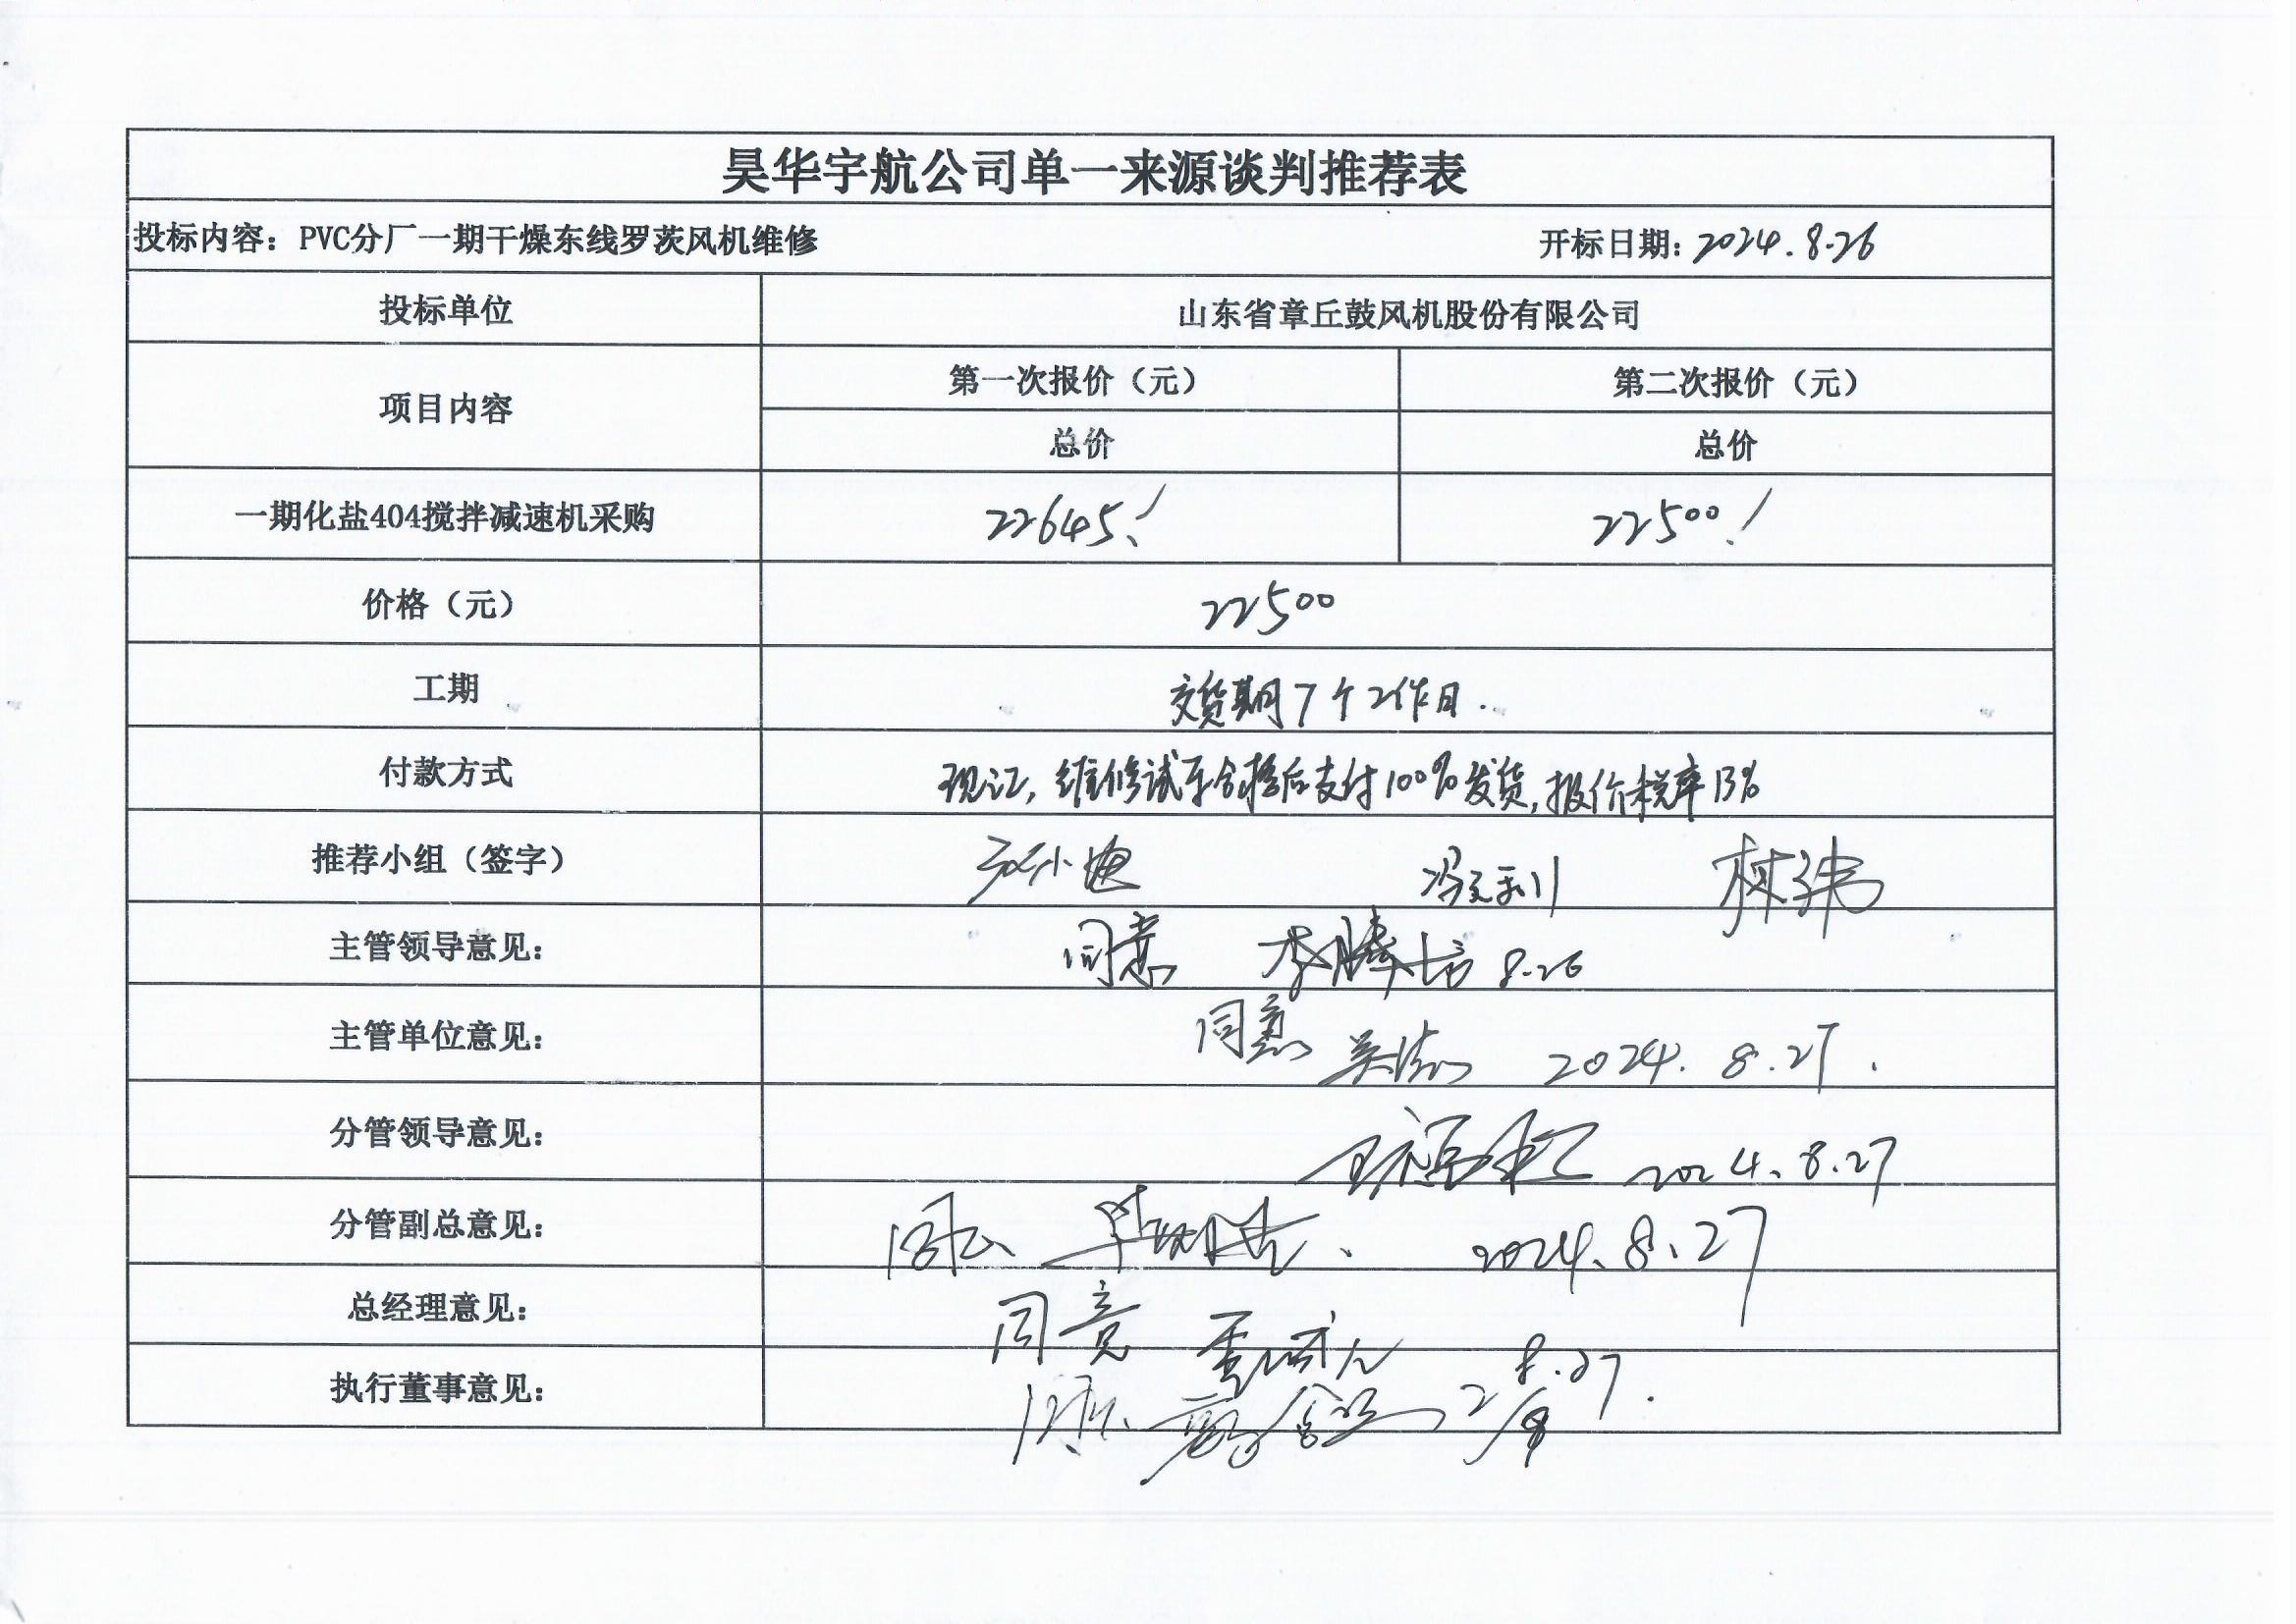 昊华宇航公司单一来源谈判推荐表
投标内容：PVC分厂一期干燥东线罗茨风机维修 开标日期：2024.8.26
投标单位 山东省章丘鼓风机股份有限公司
项目内容 第一次报价（元） 第二次报价（元）
总价 总价
一期化盐404搅拌减速机采购 22645.! 22500.!
价格（元） 22500
工期 交货期7个工作日.
付款方式 现汇，维修试车合格后支付100%发货，报价税率13%
推荐小组（签字） 冯文利 林玮
主管领导意见： 同意 8.26
主管单位意见： 同意 2024.8.27.
分管领导意见： 2024.8.27
分管副总意见： 同意 2024.8.27
总经理意见： 同意 8.27.
执行董事意见： 同意